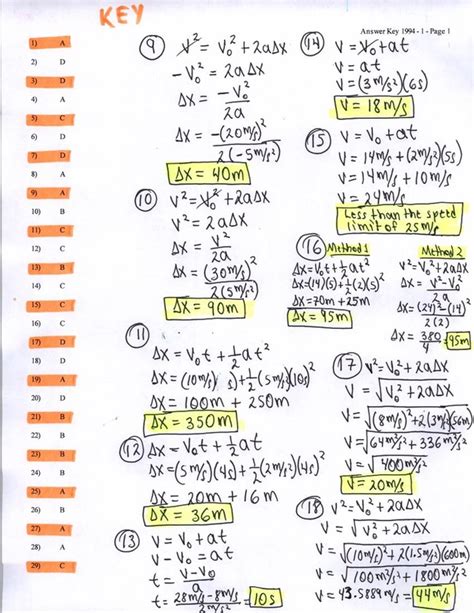 KEY
Answer Key 1994 - 1 - Page 1
1) A
2) D
3) D
4) A
5) C
6) D
7) D
8) A
9) A
10) B
11) C
12) C
13) B
14) C
15) C
16) C
17) D
18) D
19) A
20) D
21) B
22) C
23) B
24) B
25) A
26) B
27) A
28) A
29) C
9 V² = V₀² + 2aΔx
-V₀² = 2aΔx
Δx = -V₀²/2a
Δx = -(20m/s)²/2(-5m/s²)
Δx = 40m
10 V² = V₀² + 2aΔx
V² = 2aΔx
Δx = V²/2a
Δx = (30m/s)²/2(5m/s²)
Δx = 90m
11
Δx = V₀t + ½at²
Δx = (10m/s)( s) + ½(5m/s²)(10s)²
Δx = 100m + 250m
Δx = 350m
12 Δx = V₀t + ½at
Δx = (5m/s)(4s) + ½(2m/s²)(4s)²
Δx = 20m + 16m
Δx = 36m
13 V = V₀ + at
V - V₀ = at
t = V-V₀/a
t = 28m/s - 8m/s/2m/s² = 10s
14 V = V₀ + at
V = at
V = (3m/s²)(6s)
V = 18m/s
15 V = V₀ + at
V = 14m/s + (2m/s²)(5s)
V = 14m/s + 10m/s
V = 24m/s
Less than the speed
limit of 25m/s
16 Method 1
Δx = V₀t + ½at²
Δx = (14)(5) + ½(2)(5)²
Δx = 70m + 25m
Δx = 95m
Method 2
V² = V₀² + 2aΔx
Δx = V² - V₀²/2a
Δx = (24)² - (14)²/2(2)
Δx = 380/4 = 95m
17 V² = V₀² + 2aΔx
V = √V₀² + 2aΔx
V = √(8m/s)² + 2(3m/s²)(56m)
V = √64m²/s² + 336m²/s²
V = √400m²/s²
V = 20m/s
18 V² = V₀² + 2aΔx
V = √V₀² + 2aΔx
V = √(10m/s)² + 2(1.5m/s²)(600m)
V = √100m²/s² + 1800m²/s²
V = 43.5889m/s = 44m/s